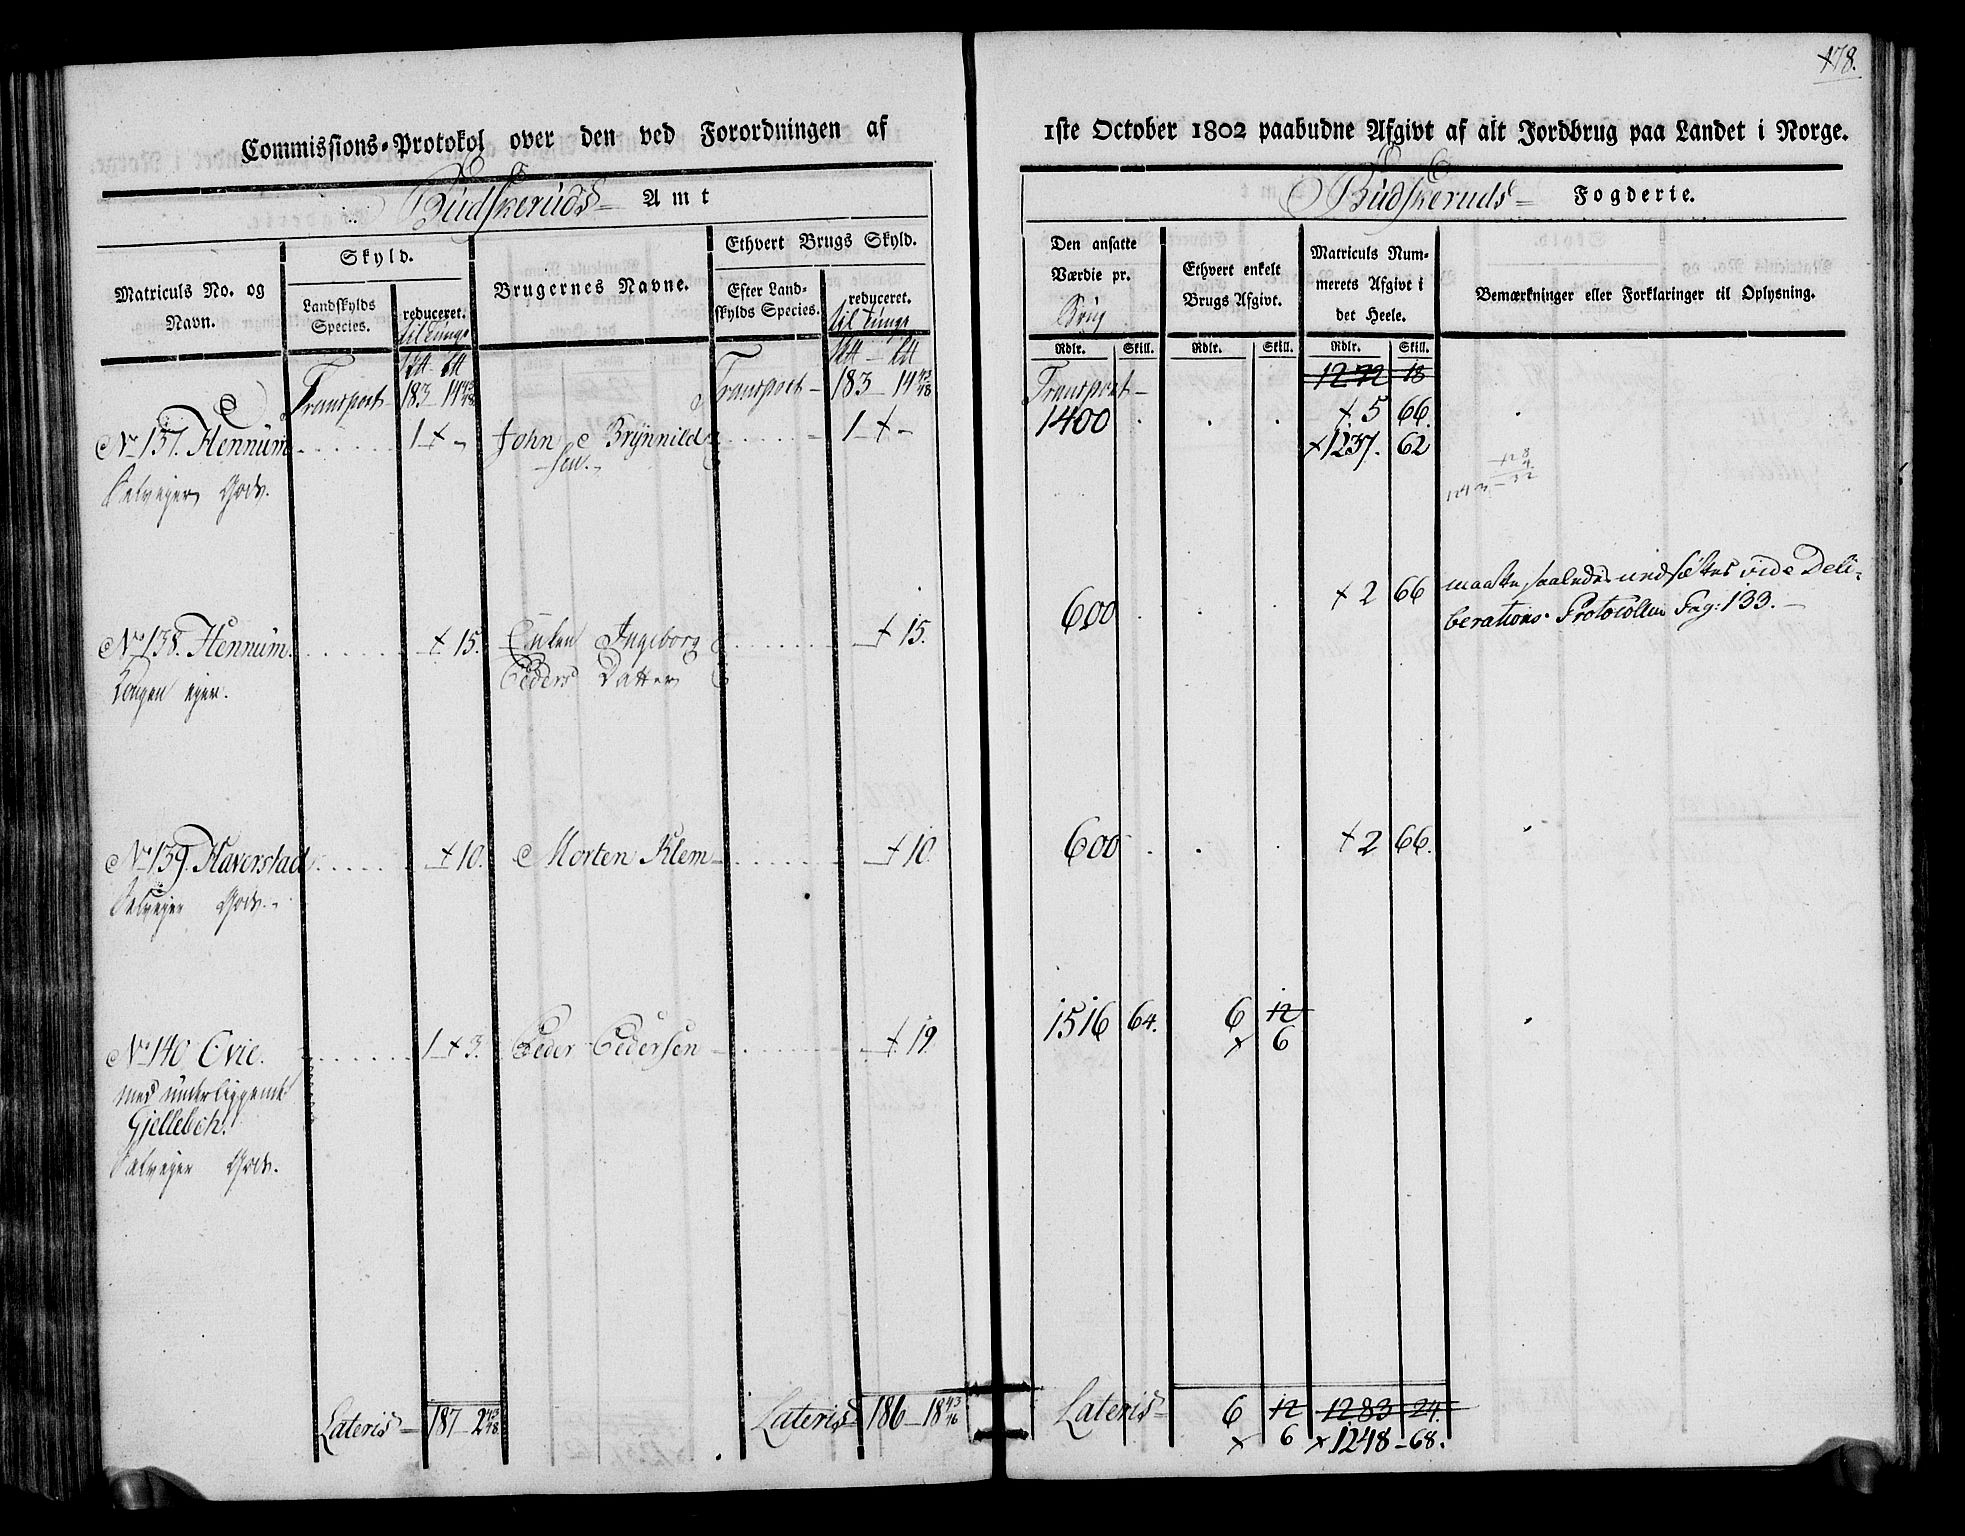 178.
Commissions-Protokol over den ved Forordningen af
1ste October 1802 paabudne Afgivt af alt Jordbrug paa Landet i Norge.
Budskeruds Amt
Budskeruds Fogderie.
Matriculs No. og Navn.
Skyld.
Landskylds Species.
reduceret. til tunge
Brugernes Navne.
Ethvert Brugs Skyld.
Efter Landskylds Species.
reduceret. til tunge
Den ansatte Værdie pr. Brug
Ethvert enkelt Brugs Afgivt.
Matriculs Nummerets Afgivt i det Heele.
Bemærkninger eller Forklaringer til Oplysning.
Rdlr. Skill. Rdlr. Skill. Rdlr. Skill.
Transport 183 - 14 43/48 Transport - 183 - 14 43/48 Transport - 1272 18
No 137. Hennum 1 - + - John Brynnild- 1 - + - 1400 + 5 66
sen. + 1237. 62
Selvejer Gods.
No 138. Hennum + 15. Enken Ingeborg + 15. 600 + 2 66 maatte saaledes nedsættes vide Deli-
Kongen ejer. Peders Datter berations Protocollen Pag: 133.
No 139. Haverstad + 10. Morten Klem + 10. 600 + 2 66.
Selvejer Gods.
No 140 Ovie. 1 + 3. Peder Pedersen + 19. 1516 64. 6 12
+ 6
med underliggende
Gjellebek.
Selvejer Gods.
Lateris 187 - 2 43/48. Lateris 186 - 18 43/48 Lateris 6 12 1283 24.
+ 6 + 1248 - 68.